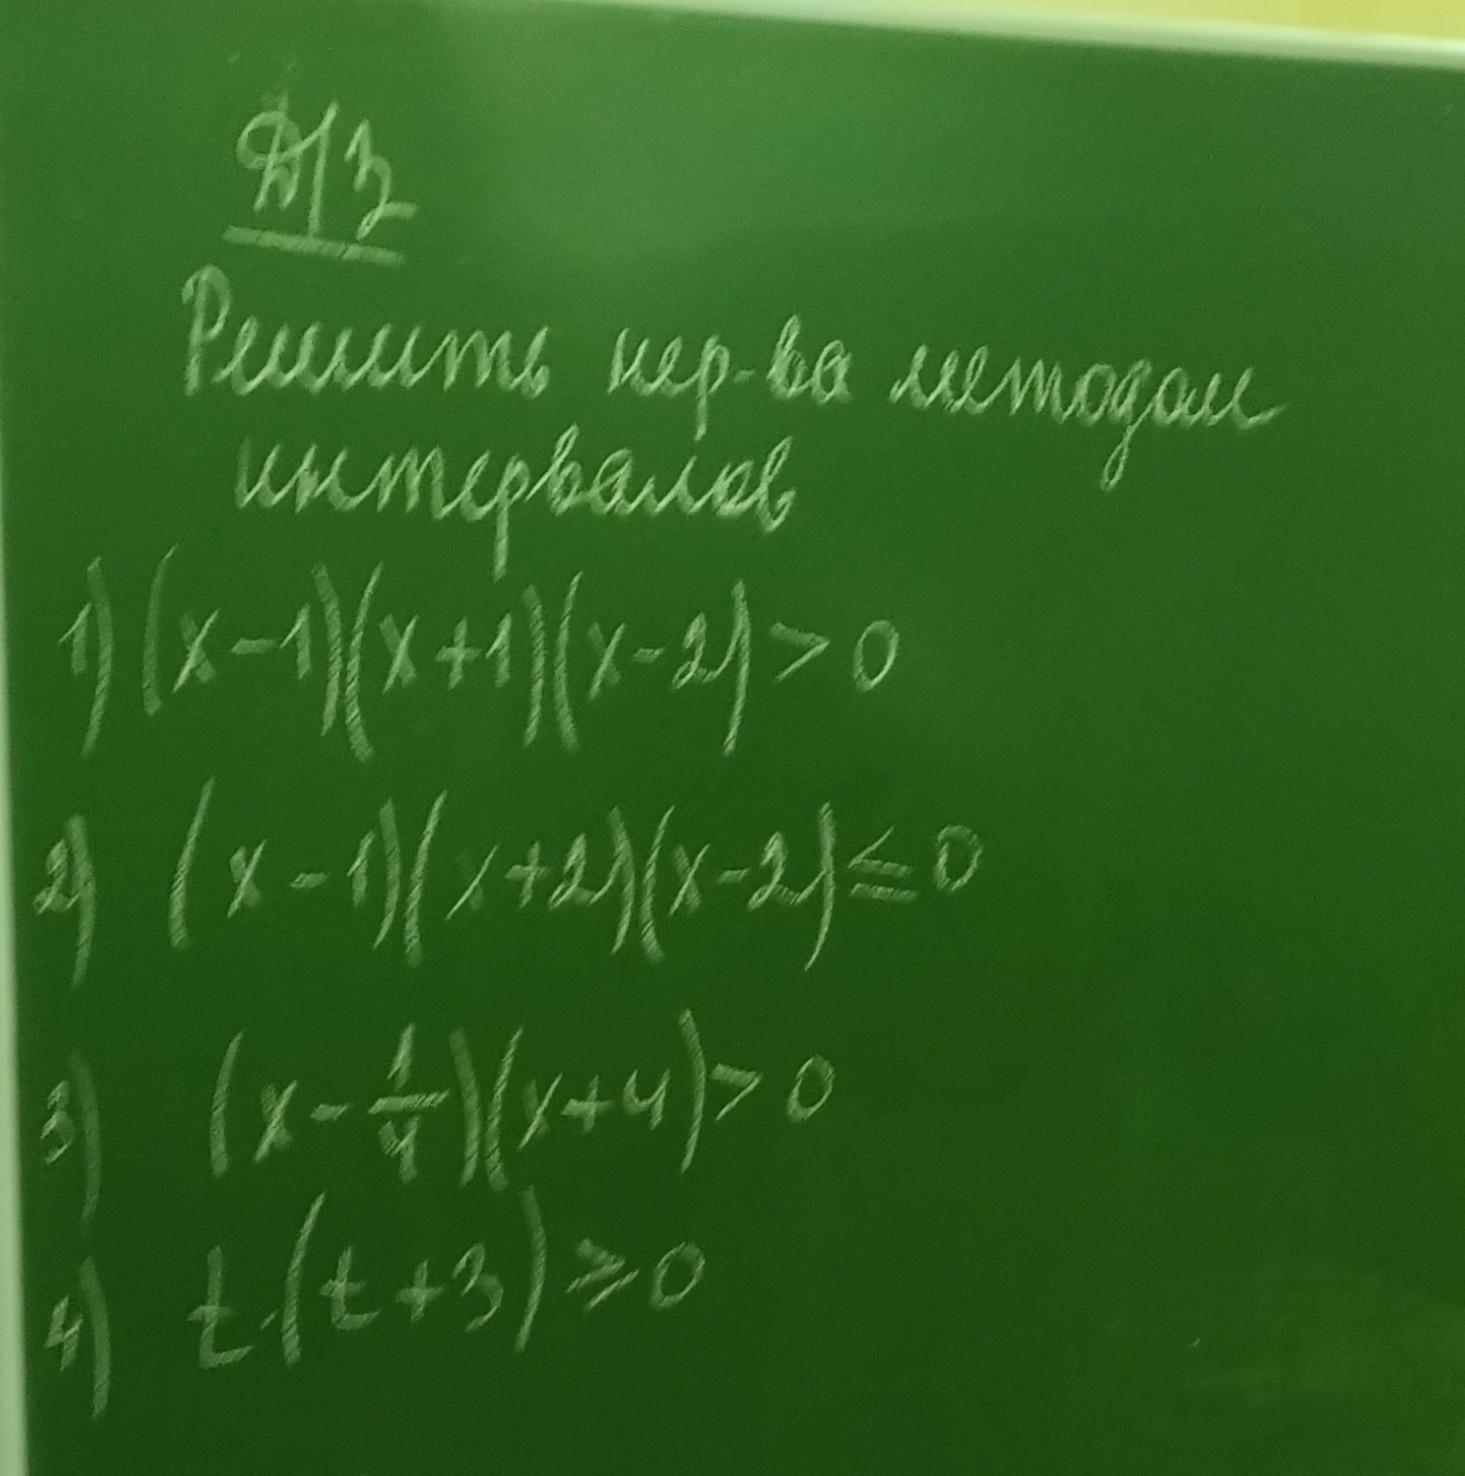 Д/з
Решить нер-ва методом
интервалов
1) (x-1)(x+1)(x-2) > 0
2) (x-1)(x+2)(x-2) ≤ 0
3) (x - 1/4)(x+4) > 0
4) t·(t+3) ≥ 0